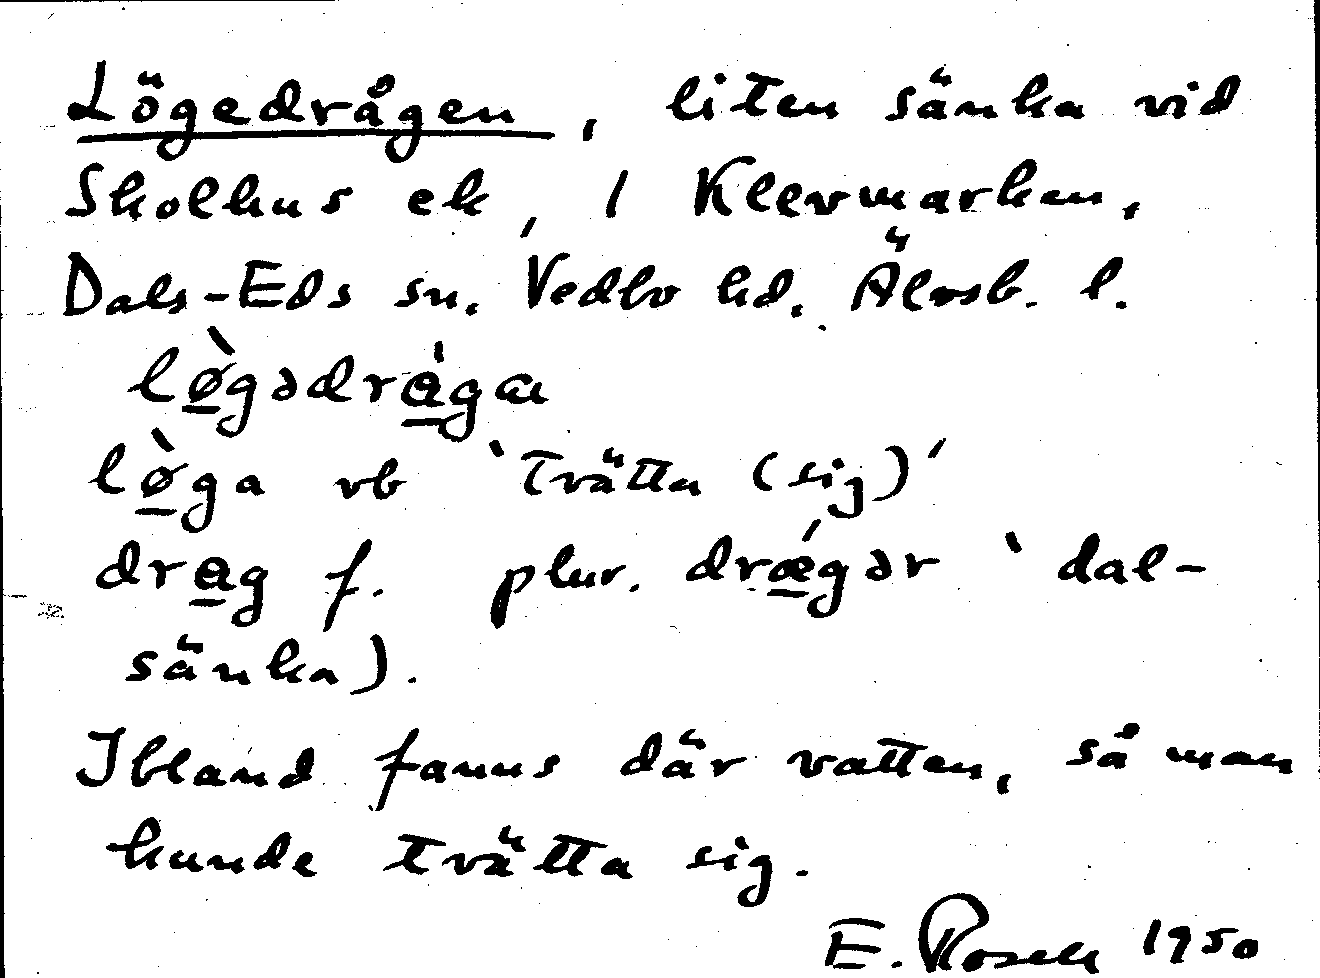 Lögedrågen, liten sänka vid
Skolhus ek, i Klevmarken,
Dals-Eds sn. Vedbo hd. Älvsb. l.
lø̱̀gədrа̱̀gæ
lø̱̀ga vb `tvätta (sig)´
dra̱g f. plur. drǽ̱gər `dal-
sänka).
Ibland fanns där vatten, så man
kunde tvätta sig.
E. 1950